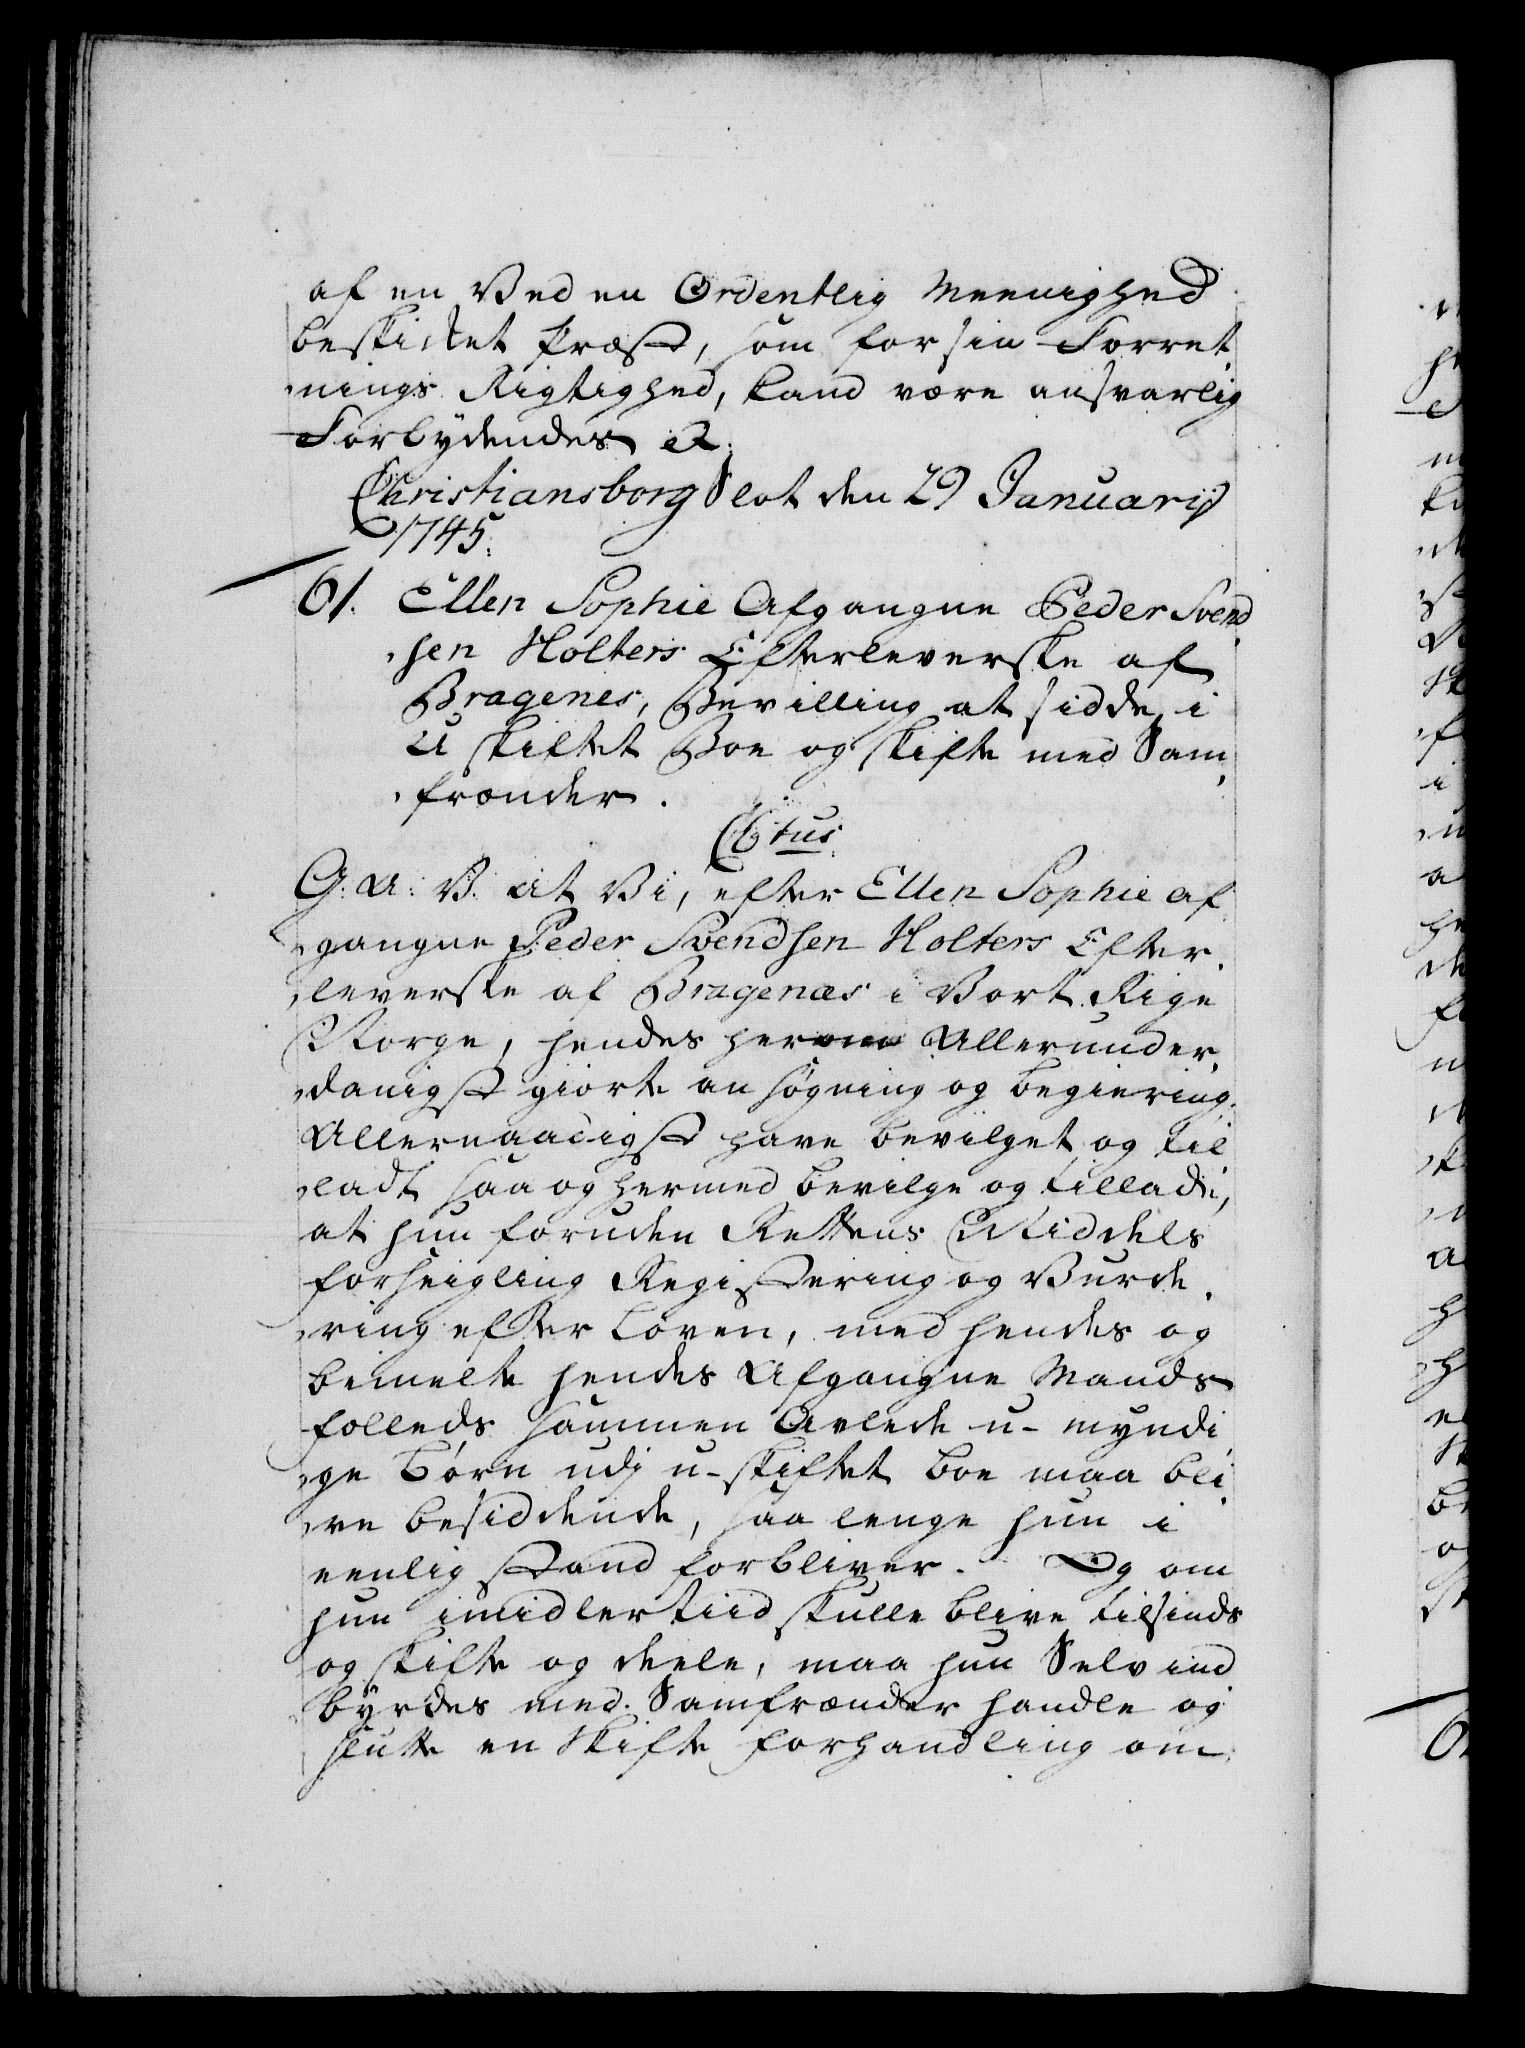 af en Ved en Ordentlig Meenighed
beskicket Præst, som for sin Forret
nings Rigtighed, kand være ansvarlig
Forbydendes &.
Christiansborg Slot den 29 Januarij
1745.
61. Ellen Sophie Afgangne Peder Svend
sen Holters Efterleverske af
Bragenes, Bevilling at sidde i
U skiftet Boe og skifte med Sam
frænder.
C6tus
G: A: V. at Vi, efter Ellen Sophie af
gangne Peder Svendsen Holters Efter
leverske af Bragenæs i Vort Rige
Norge, hendes herom Allerunder
danigst giorte ansøgning og begiering
Allernaadigst have bevilget og til
ladt, saa og hermed bevilge og tillade,
at hun foruden Rettens Middels
forseigling Registering og Vurde
ring efter Loven, med hendes og
bemelte hendes Afgangne Mands
folleds sammen Avlede u-myndi
ge Børn udj u-skiftet boe maa bli
ve besiddende, saa lenge hun i
eenlig stand forbliver. Og om
hun imidlertiid skulle blive tilsinds
og skifte og deele, maa hun Selv ind
byrdes med Samfrænder handle og
slutte en Skifte forhandling om